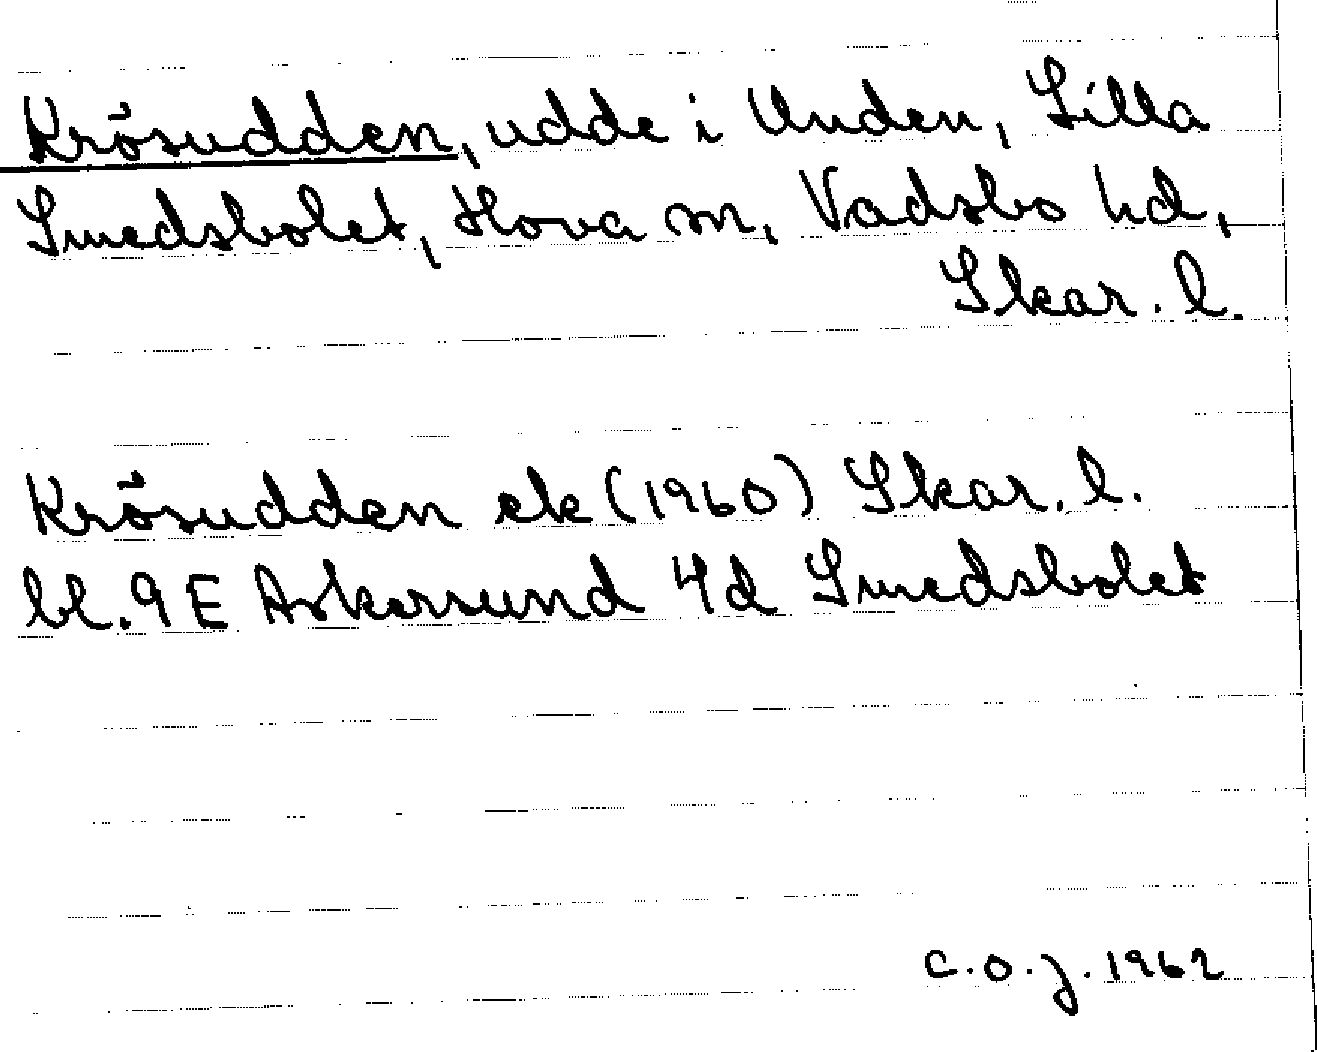 Krösudden, udde i Unden, Lilla
Smedsbolet, Hova sn, Vadsbo hd,
Skar. l.
Krösudden ek (1960) Skar. l.
bl. 9E Askersund 4d Smedsbolet
C.O.J. 1962